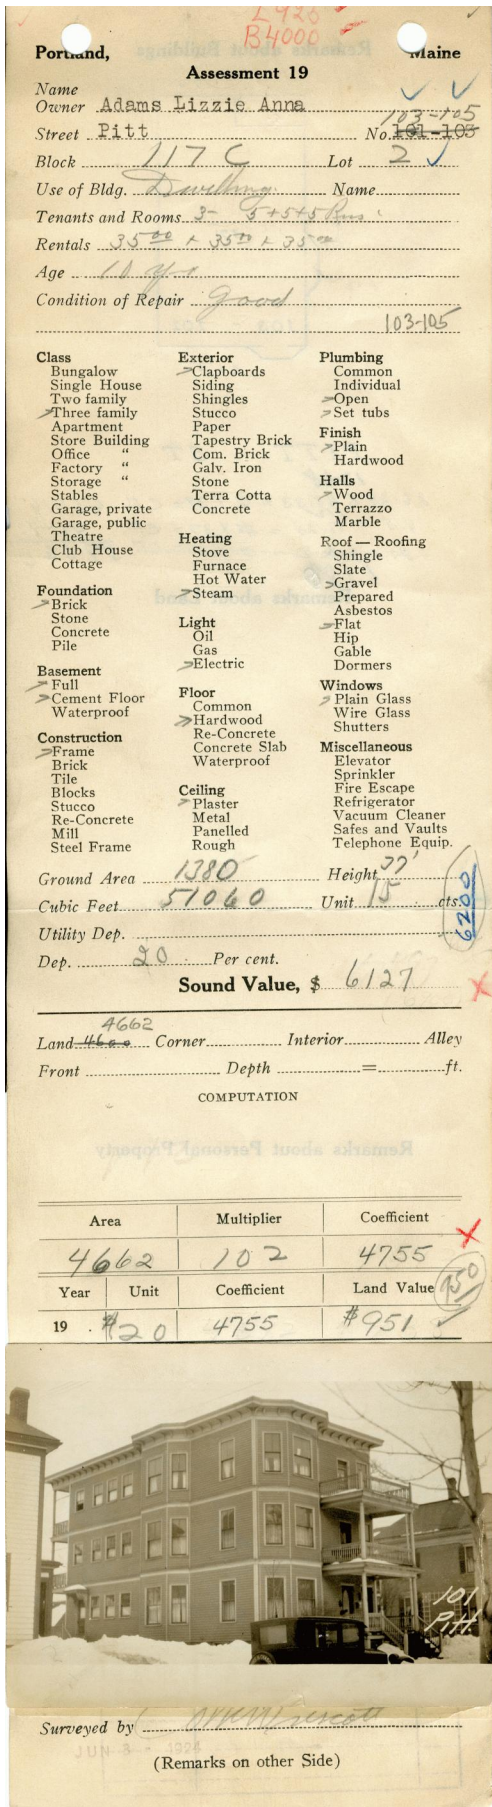 L 925
B 4000
Portland, Maine
Assessment 19
Name
Owner Adams Lizzie Anna
103-105
Street Pitt No. 101-103
Block 117 C Lot 2
Use of Bldg. Dwelling Name
Tenants and Rooms 3- 5+5+5 Rms
Rentals 35 00 + 35 00 + 35 00
Age 10 yrs
Condition of Repair Good
103-105
Class
Bungalow
Single House
Two family
Three family
Apartment
Store Building
Office "
Factory "
Storage "
Stables
Garage, private
Garage, public
Theatre
Club House
Cottage
Foundation
Brick
Stone
Concrete
Pile
Basement
Full
Cement Floor
Waterproof
Construction
Frame
Brick
Tile
Blocks
Stucco
Re-Concrete
Mill
Steel Frame
Exterior
Clapboards
Siding
Shingles
Stucco
Paper
Tapestry Brick
Com. Brick
Galv. Iron
Stone
Terra Cotta
Concrete
Heating
Stove
Furnace
Hot Water
Steam
Light
Oil
Gas
Electric
Floor
Common
Hardwood
Re-Concrete
Concrete Slab
Waterproof
Ceiling
Plaster
Metal
Panelled
Rough
Plumbing
Common
Individual
Open
Set tubs
Finish
Plain
Hardwood
Halls
Wood
Terrazzo
Marble
Roof — Roofing
Shingle
Slate
Gravel
Prepared
Asbestos
Flat
Hip
Gable
Dormers
Windows
Plain Glass
Wire Glass
Shutters
Miscellaneous
Elevator
Sprinkler
Fire Escape
Refrigerator
Vacuum Cleaner
Safes and Vaults
Telephone Equip.
Ground Area 1380 Height 37'
Cubic Feet 51060 Unit 15 cts.
6200
Utility Dep.
Dep. 20 Per cent.
Sound Value, $ 6127
4662
Land 4600 Corner Interior Alley
Front Depth = ft.
COMPUTATION
Remarks about Personal Property
Area Multiplier Coefficient
4662 102 4755
Year Unit Coefficient Land Value
950
19 $20 4755 $951
101
Pitt
Surveyed by Prescott
JUN 3 - 1924
(Remarks on other Side)